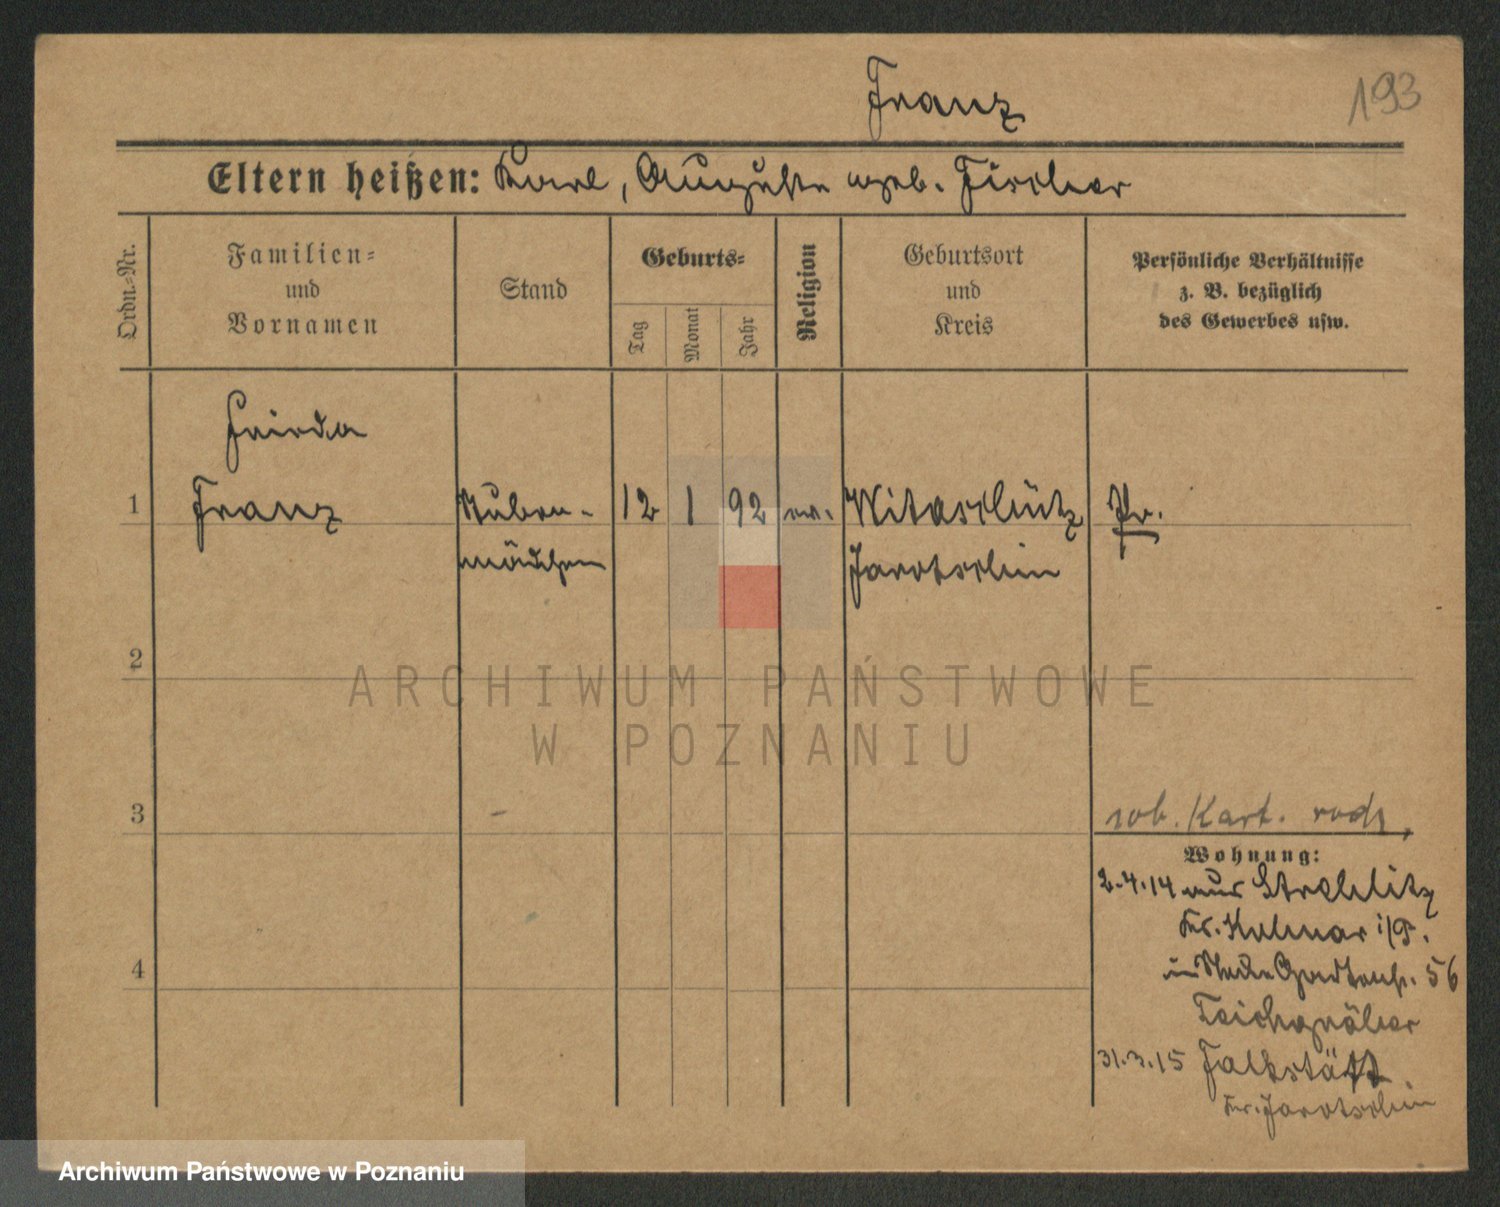 Franz
193
Eltern heißen: Karl, Auguste geb. Fischer
Ordn.-Nr.
Familien-
und
Vornamen
Stand
Geburts-
Tag
Monat
Jahr
Religion
Geburtsort
und
Kreis
Persönliche Verhältnisse
z. B. bezüglich
des Gewerbes usw.
Frieda
1 Franz Stuben- 12 1 92 ev. Witaschütz Pr.
mädchen Jarotschin
2
ARCHIWUM PAŃSTWOWE
W POZNANIU
3
Kart.
Wohnung:
2.4.14 aus Strelitz
Kr. Kolmar i/P.
56
Teichgräber
4
31.3.15 Falkstätt
Kr. Jarotschin
Archiwum Państwowe w Poznaniu